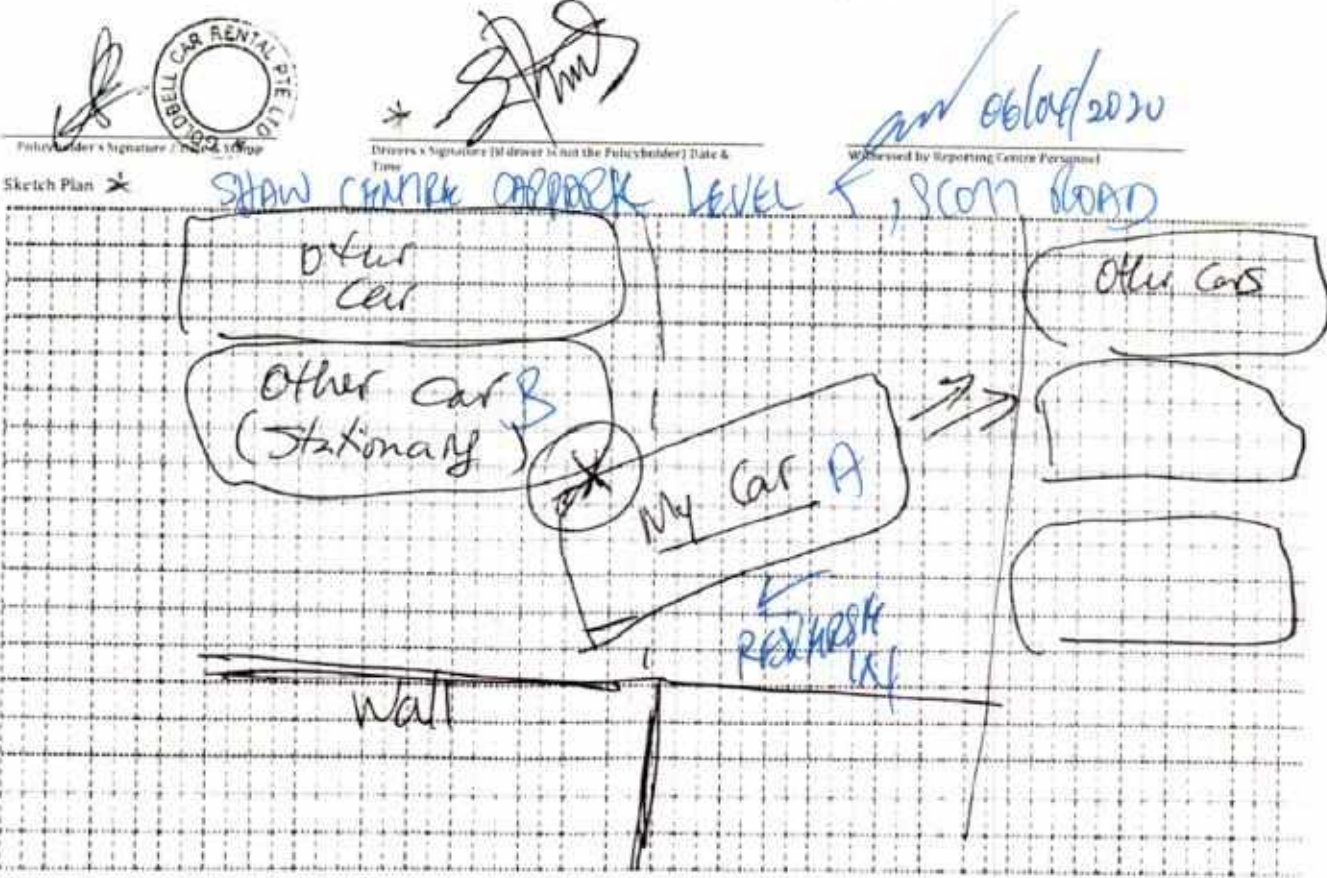 GOLDBELL CAR RENTAL PTE LTD
06/04/2020
Policyholder's Signature / Date & Stamp
Drivers's Signature (if driver is not the Policyholder) Date & Time
Witnessed by Reporting Centre Personnel
Sketch Plan
SHAW CENTRE CARPARK LEVEL 5, SCOTT ROAD
Other Car
Other Cars
Other Car B
(Stationary)
My Car A
Wall